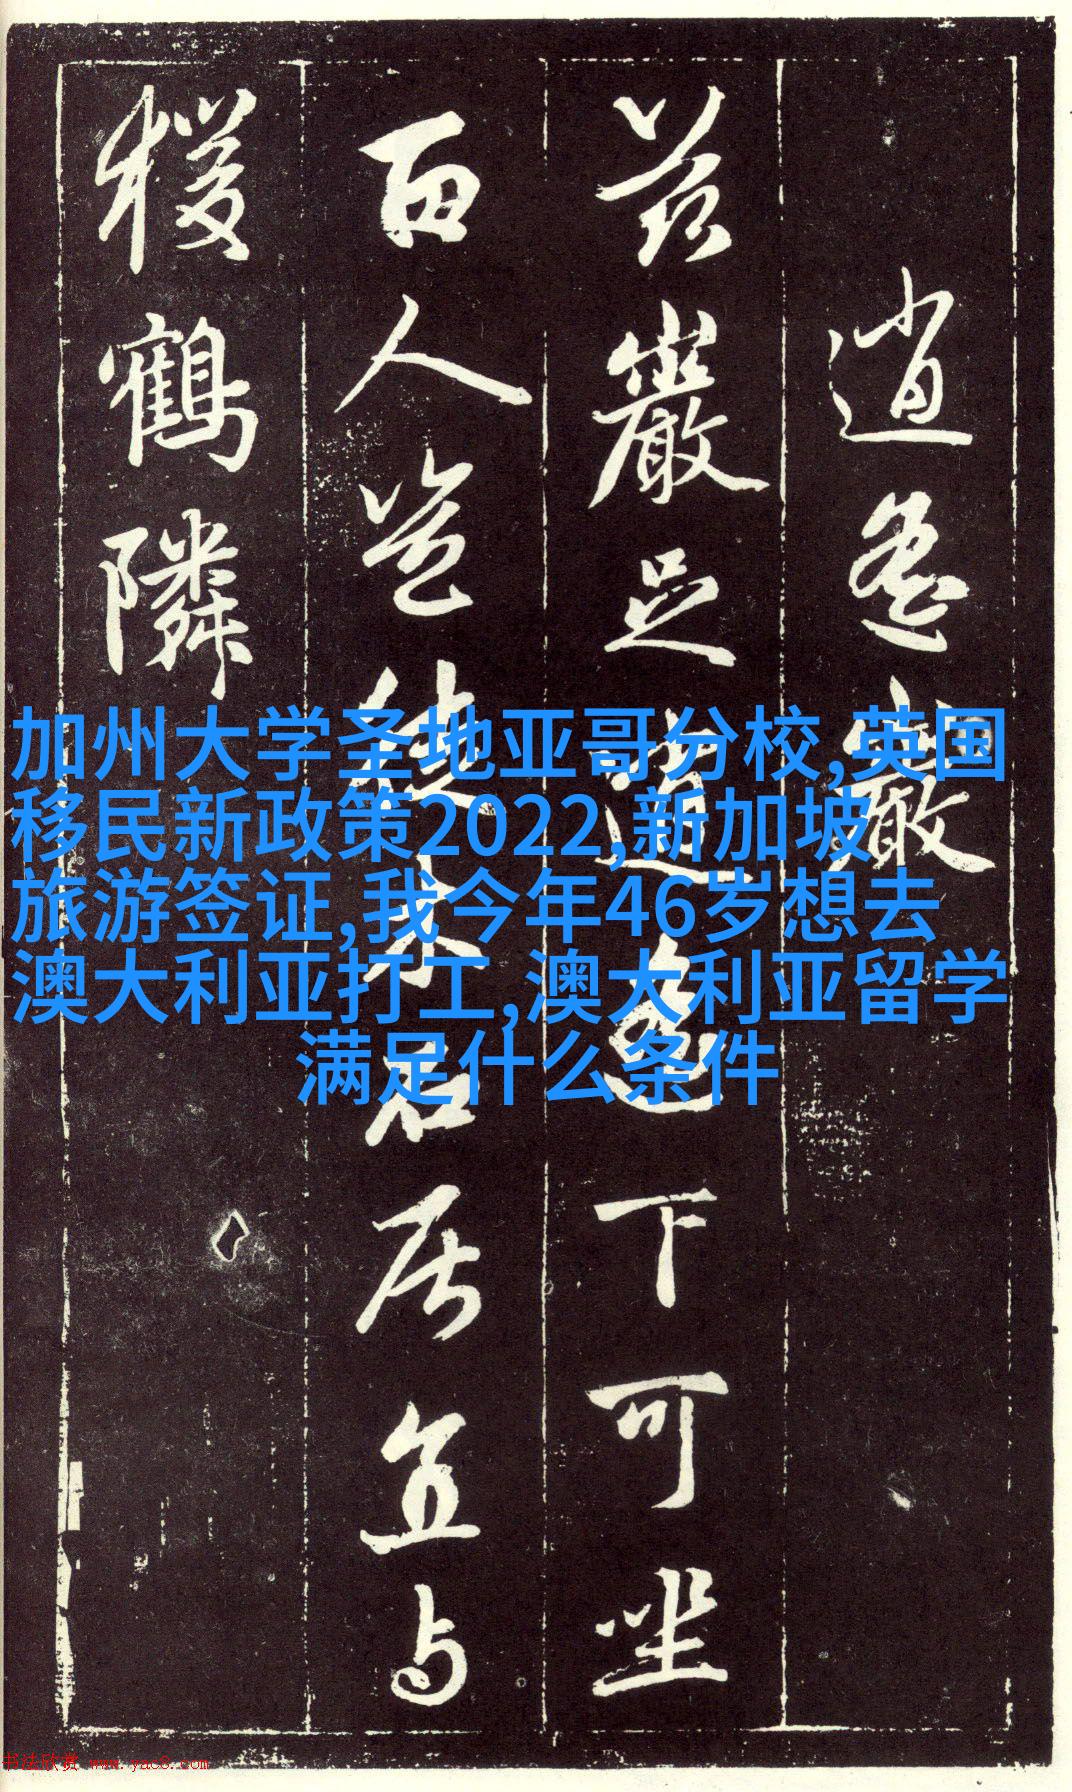 逍遙巖
茲巖足逍遙下可坐
百人豈徒木石居宜与
猨鶴隣
加州大学圣地亚哥分校,英国
移民新政策2022,新加坡
旅游签证,我今年46岁想去
澳大利亚打工,澳大利亚留学
满足什么条件
书法欣赏 www.yac8.com